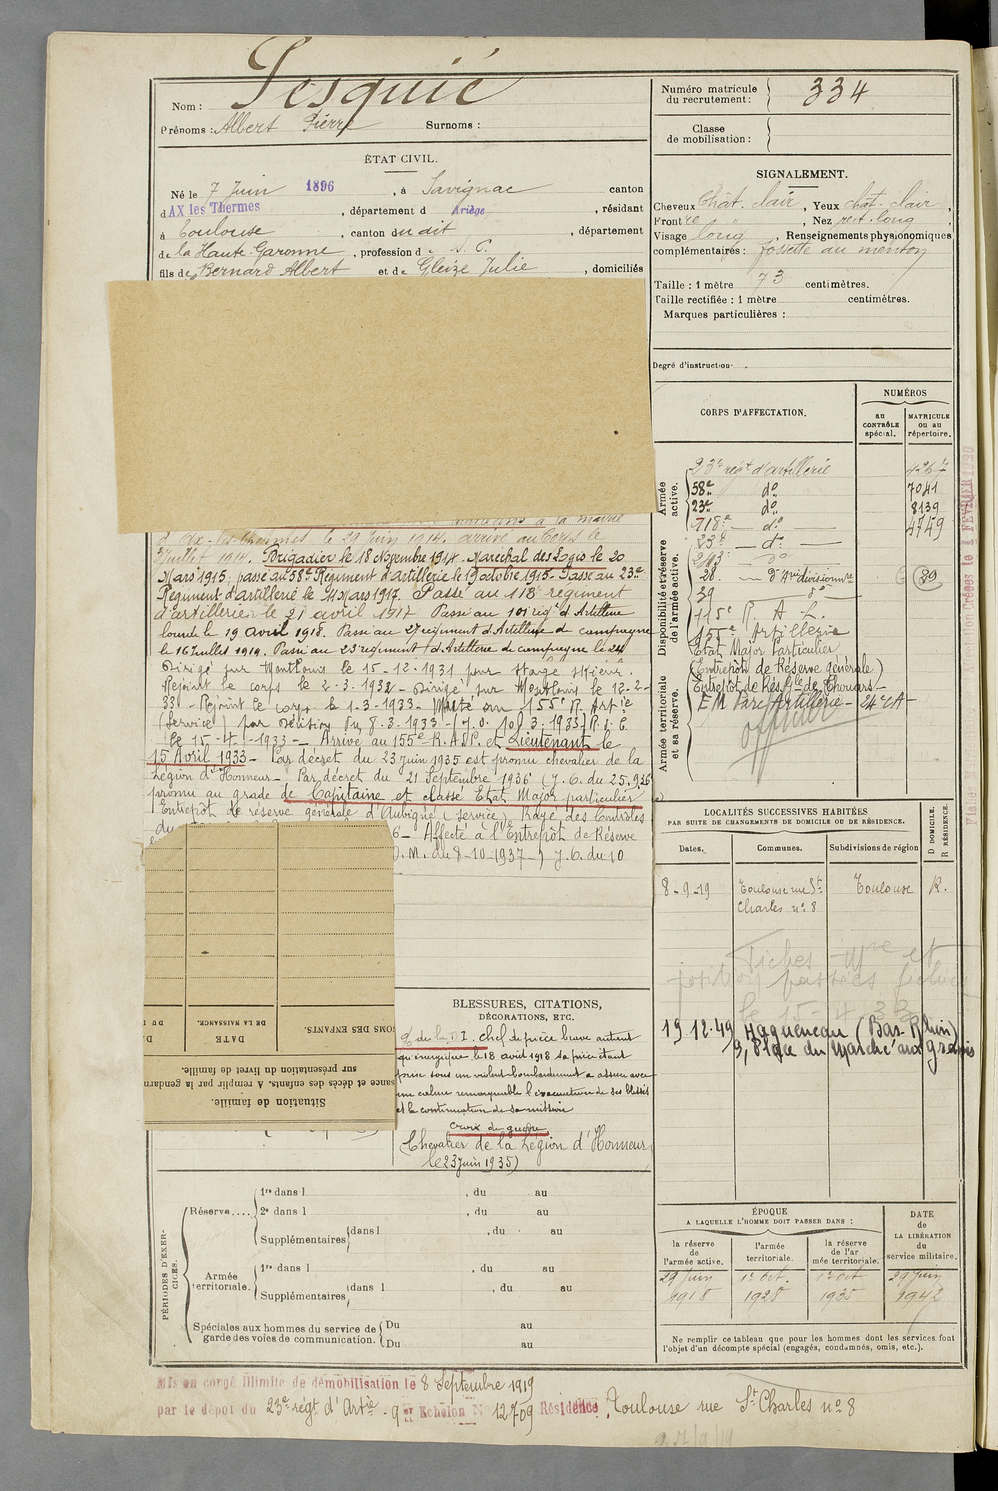 Nom : Sesquié
Prénoms : Albert Pierre Surnoms :
ÉTAT CIVIL.
Né le 7 Juin 1896, à Savignac canton
d AX les Thermes, département d Ariège, résidant
à Toulouse, canton sudit, département
de la Haute Garonne, profession d S. P.
fils de Bernard Albert et de Gleize Julie, domiciliés
à la mairie
d'Ax-les-Thermes le 29 juin 1914. arrivé au corps le
Juillet 1914. Brigadier le 18 Novembre 1914. Maréchal des Logis le 20
Mars 1915. passé au 58e Régiment d'artillerie le 19 octobre 1915. Passé au 23e
Régiment d'artillerie le Mars 1917. Passé au 118e régiment
d'artillerie le 21 avril 1917. Passé au 101 régt d'Artillerie
lourde le 19 Avril 1918. Passé au 27 régiment d'Artillerie de campagne
le 16 Juillet 1919. Passé au 23 régiment d'Artillerie de campagne le 24
Dirigé sur Montlouis le 15-12-1931 pour stage skieur.
Rejoint le corps le 2-3-1932 - Dirigé sur Montlouis le 12-2-
33 - Rejoint le corps le 1-3-1933 - Muté au 155e R. Artie
(Service) par décision du 8-3-1933 - (J.O. 10/3-1933)
Le 15-4-1933 - Arrivé au 155e R.A.P. et Lieutenant le
15 Avril 1933 - Par décret du 23 Juin 1935 est promu chevalier de la
Légion d'Honneur - Par décret du 21 Septembre 1936 (J.O. du 25.9.36
promu au grade de Capitaine et classé Etat Major particulier
Entrepôt de réserve générale d'Aubigné (service) Rayé des Contrôles
du
6 - Affecté à l'Entrepôt de Réserve
D.M. du 8-10-1937 -) J.O. du 10
SITUATION de famille.
sance et décès des enfants. A remplir par la gendarm
sur présentation du livret de famille.
NOMS DES ENFANTS.
DATE
DE LA NAISSANCE.
BLESSURES, CITATIONS,
DÉCORATIONS, ETC.
Chef de pièce brave autant
qu'énergique le 18 avril 1918 sa pièce étant
prise sous un violent bombardement a assuré avec
un calme remarquable l'évacuation de ses blessés
et la continuation de sa mission
Croix de guerre
Chevalier de la Légion d'Honneur
le 23 Juin 1935)
PÉRIODES D'EXERCICES.
Réserve.... 1re dans l , du au
2e dans l , du au
Supplémentaires dans l , du au
Armée territoriale. 1re dans l , du au
Supplémentaires dans l , du au
Spéciales aux hommes du service de garde des voies de communication. Du au
Du au
Mis en congé illimité de démobilisation le 8 Septembre 1919
par le dépot du 23e régt d'Artie - 9er Echelon N° 12709 Résidence Toulouse rue St Charles n° 8
Numéro matricule du recrutement : 334
Classe de mobilisation :
SIGNALEMENT.
Cheveux Chât. clair, Yeux chât. clair,
Front re, Nez rect. long
Visage long, Renseignements physionomiques
complémentaires : fossette au menton
Taille : 1 mètre 73 centimètres.
Taille rectifiée : 1 mètre centimètres.
Marques particulières :
Degré d'instruction
CORPS D'AFFECTATION.
NUMÉROS
au CONTRÔLE spécial.
MATRICULE ou au répertoire.
Armée active.
23e régt d'artillerie
58e do 7041
23e do 8139
118e do 4749
Disponibilité et réserve de l'armée active.
23e do
243e do
28 89
39
115e R. A. L.
155e Artillerie
Armée territoriale et sa réserve.
Etat Major Particulier
(Entrepôt de Réserve générale)
Entrepôt de Rés. Gle de Thouars
E M Parc Artillerie - 24e CA
officier
LOCALITÉS SUCCESSIVES HABITÉES
PAR SUITE DE CHANGEMENTS DE DOMICILE OU DE RÉSIDENCE.
D DOMICILE. R RÉSIDENCE.
Dates. Communes. Subdivisions de région
8-9-19 Toulouse rue St Charles n° 8 Toulouse R.
Fiches Mre et
position passées
le 15-4-33
19.12.49 Haguenau (Bas-Rhin)
9, Place du Marché aux grains
ÉPOQUE
A LAQUELLE L'HOMME DOIT PASSER DANS :
DATE de LA LIBÉRATION du service militaire.
la réserve de l'armée active.
l'armée territoriale.
la réserve de l'armée territoriale.
29 Juin 1918
1er Oct. 1928
1er Oct 1935
29 Juin 1942
Ne remplir ce tableau que pour les hommes dont les services font
l'objet d'un décompte spécial (engagés, condamnés, omis, etc.).